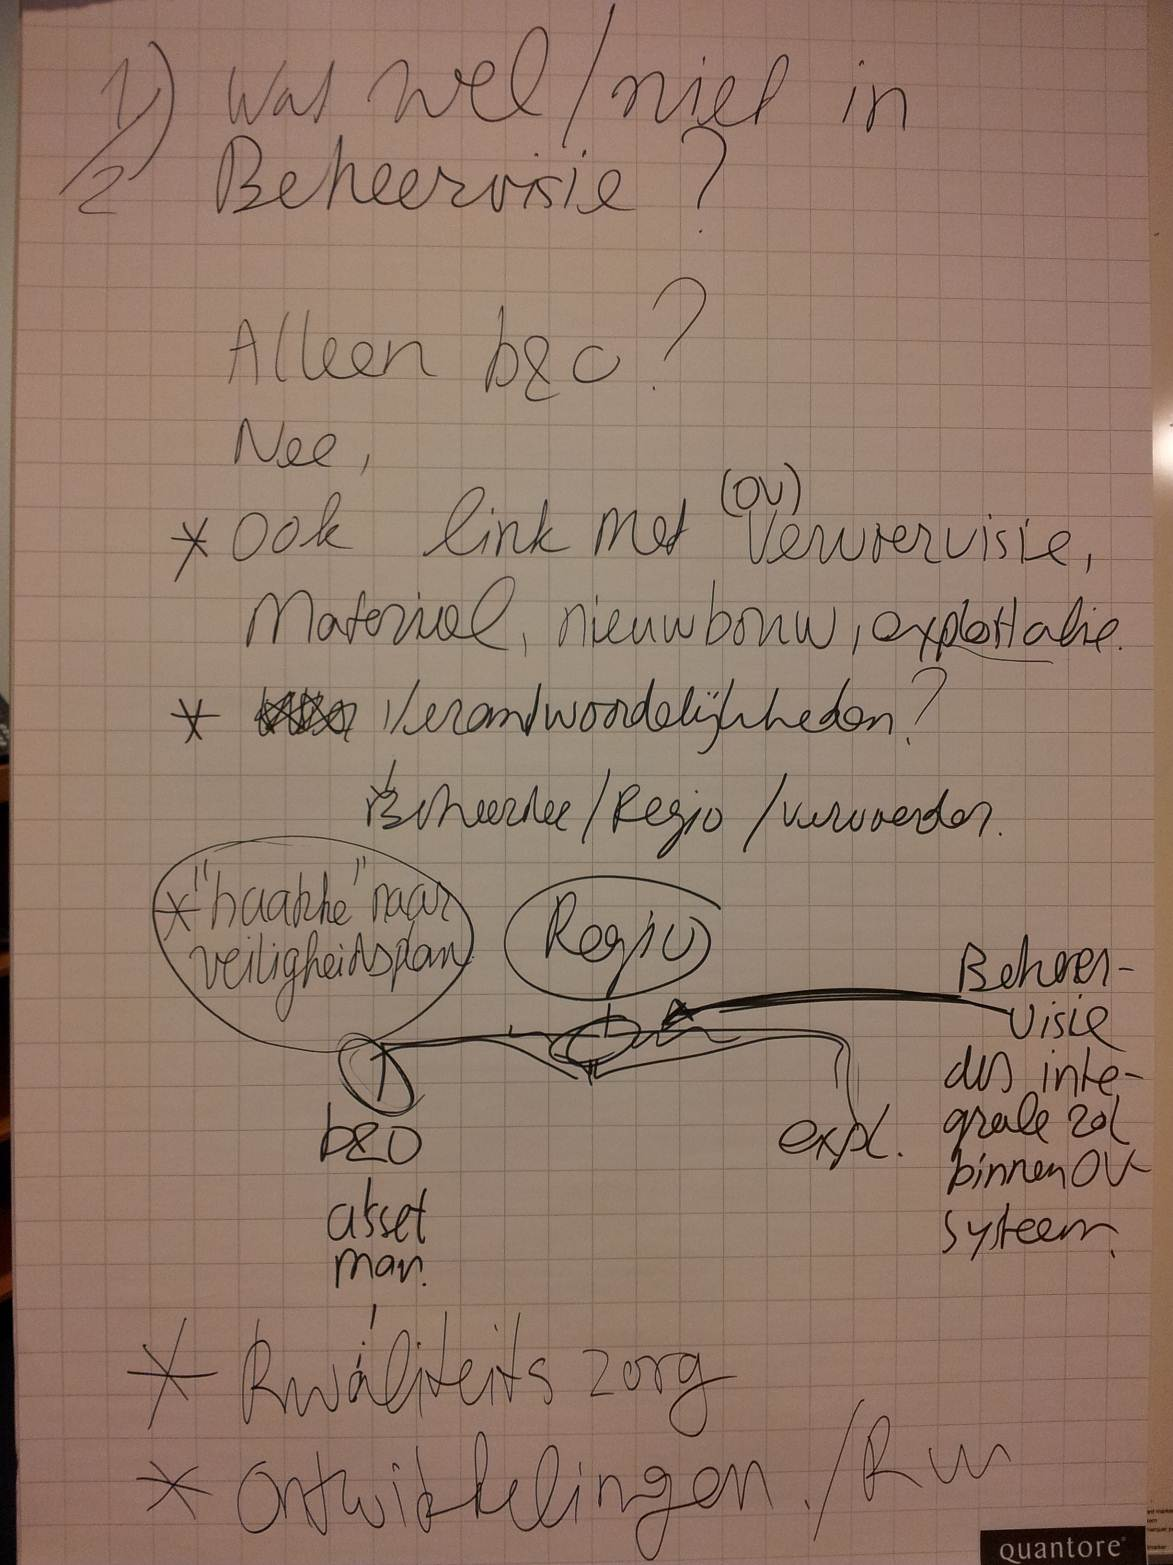 1) Wat wel/niet in
2 Beheervisie?
Alleen b&o?
Nee,
(OV)
* ook link met Vervoervisie,
Materieel, nieuwbouw, exploitatie.
* Verantwoordelijkheden?
Beheerder/Regio/vervoerder.
* "haakje" naar
veiligheidsplan
Regio
Beheer-
visie
dus inte-
grale rol
binnen OV-
systeem.
b&o
expl.
asset
man.
* Kwaliteitszorg
* Ontwikkelingen./
quantore